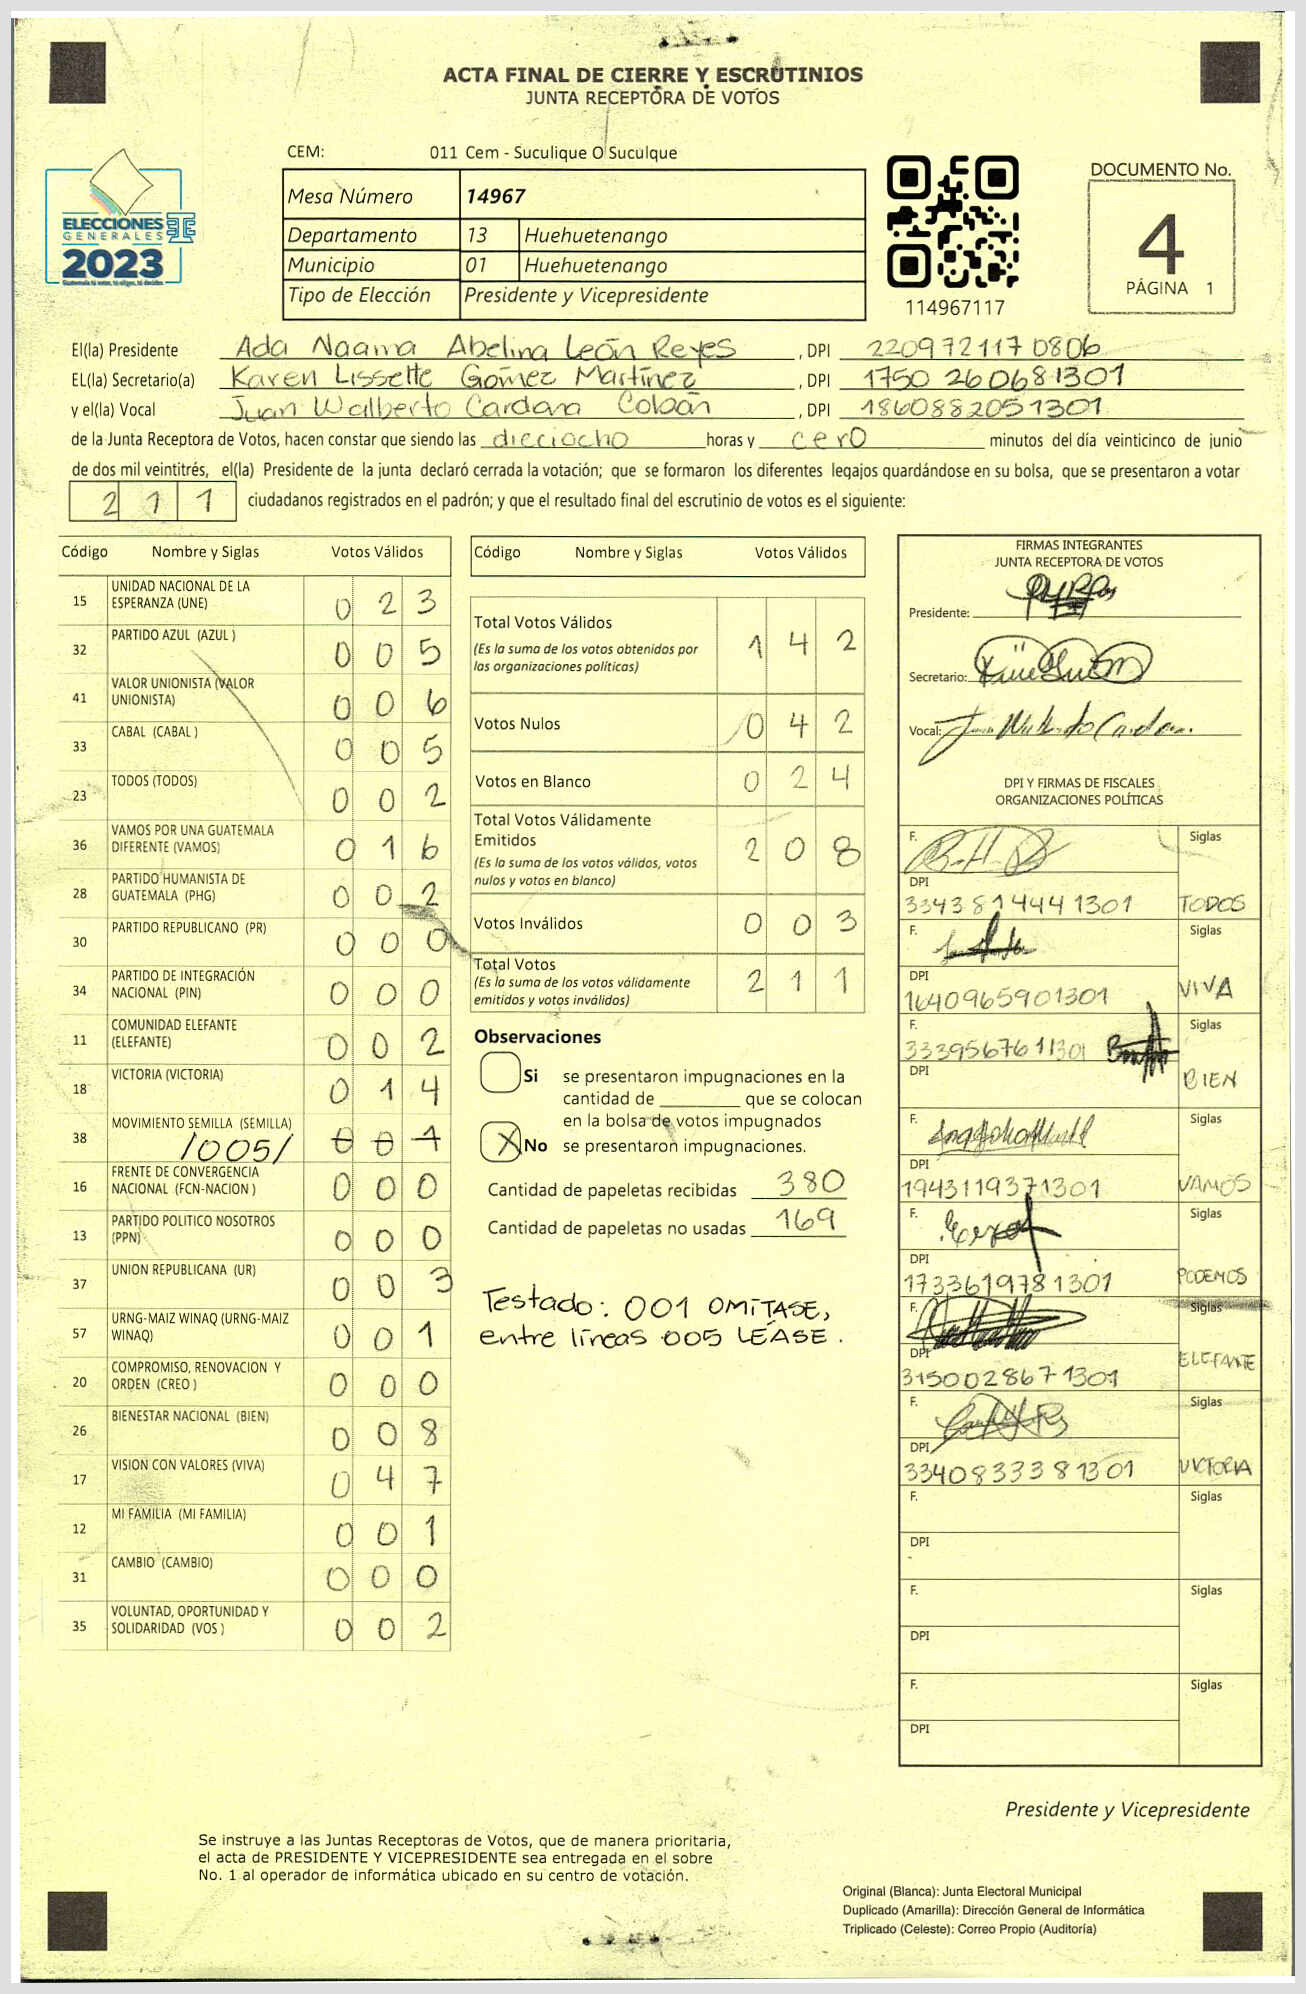 ACTA FINAL DE CIERRE Y ESCRUTINIOS
JUNTA RECEPTORA DE VOTOS
CEM: 011 Cem - Suculique O Suculque
ELECCIONES
GENERALES
2023
Mesa Número 14967
Departamento 13 Huehuetenango
Municipio 01 Huehuetenango
Tipo de Elección Presidente y Vicepresidente
114967117
DOCUMENTO No.
4
PÁGINA 1
El(la) Presidente Ada Naama Abelina León Reyes, DPI 2209721170806
EL(la) Secretario(a) Karen Lissette Gómez Martínez, DPI 1750 260681301
y el(la) Vocal Juan Walberto Cardona Cobán, DPI 1860882051301
de la Junta Receptora de Votos, hacen constar que siendo las dieciocho horas y cero minutos del día veinticinco de junio
de dos mil veintitrés, el(la) Presidente de la junta declaró cerrada la votación; que se formaron los diferentes legajos guardándose en su bolsa, que se presentaron a votar
211 ciudadanos registrados en el padrón; y que el resultado final del escrutinio de votos es el siguiente:
Código Nombre y Siglas Votos Válidos
15 UNIDAD NACIONAL DE LA ESPERANZA (UNE) 0 2 3
32 PARTIDO AZUL (AZUL ) 0 0 5
41 VALOR UNIONISTA (VALOR UNIONISTA) 0 0 6
33 CABAL (CABAL ) 0 0 5
23 TODOS (TODOS) 0 0 2
36 VAMOS POR UNA GUATEMALA DIFERENTE (VAMOS) 0 1 6
28 PARTIDO HUMANISTA DE GUATEMALA (PHG) 0 0 2
30 PARTIDO REPUBLICANO (PR) 0 0 0
34 PARTIDO DE INTEGRACIÓN NACIONAL (PIN) 0 0 0
11 COMUNIDAD ELEFANTE (ELEFANTE) 0 0 2
18 VICTORIA (VICTORIA) 0 1 4
38 MOVIMIENTO SEMILLA (SEMILLA) /005/ 0 0 1
16 FRENTE DE CONVERGENCIA NACIONAL (FCN-NACION ) 0 0 0
13 PARTIDO POLITICO NOSOTROS (PPN) 0 0 0
37 UNION REPUBLICANA (UR) 0 0 3
57 URNG-MAIZ WINAQ (URNG-MAIZ WINAQ) 0 0 1
20 COMPROMISO, RENOVACION Y ORDEN (CREO ) 0 0 0
26 BIENESTAR NACIONAL (BIEN) 0 0 8
17 VISION CON VALORES (VIVA) 0 4 7
12 MI FAMILIA (MI FAMILIA) 0 0 1
31 CAMBIO (CAMBIO) 0 0 0
35 VOLUNTAD, OPORTUNIDAD Y SOLIDARIDAD (VOS ) 0 0 2
Código Nombre y Siglas Votos Válidos
Total Votos Válidos 1 4 2
(Es la suma de los votos obtenidos por
las organizaciones políticas)
Votos Nulos 0 4 2
Votos en Blanco 0 2 4
Total Votos Válidamente
Emitidos 2 0 8
(Es la suma de los votos válidos, votos
nulos y votos en blanco)
Votos Inválidos 0 0 3
Total Votos
(Es la suma de los votos válidamente
emitidos y votos inválidos) 2 1 1
Observaciones
Si se presentaron impugnaciones en la
cantidad de ________ que se colocan
en la bolsa de votos impugnados
X No se presentaron impugnaciones.
Cantidad de papeletas recibidas 380
Cantidad de papeletas no usadas 169
Testado: 001 OMÍTASE,
entre líneas 005 LÉASE.
FIRMAS INTEGRANTES
JUNTA RECEPTORA DE VOTOS
Presidente:
Secretario:
Vocal:
DPI Y FIRMAS DE FISCALES
ORGANIZACIONES POLÍTICAS
F. Siglas
DPI
3343814441301 TODOS
F. Siglas
DPI
1640965901301 VIVA
F. Siglas
3339567611301
DPI BIEN
F. Siglas
DPI
1943119371301 VAMOS
F. Siglas
DPI
1733619781301 PODEMOS
F. Siglas
DPI
3150028671301 ELEFANTE
F. Siglas
DPI
3340833381301 VICTORIA
F. Siglas
DPI
F. Siglas
DPI
F. Siglas
DPI
Presidente y Vicepresidente
Se instruye a las Juntas Receptoras de Votos, que de manera prioritaria,
el acta de PRESIDENTE Y VICEPRESIDENTE sea entregada en el sobre
No. 1 al operador de informática ubicado en su centro de votación.
Original (Blanca): Junta Electoral Municipal
Duplicado (Amarilla): Dirección General de Informática
Triplicado (Celeste): Correo Propio (Auditoría)